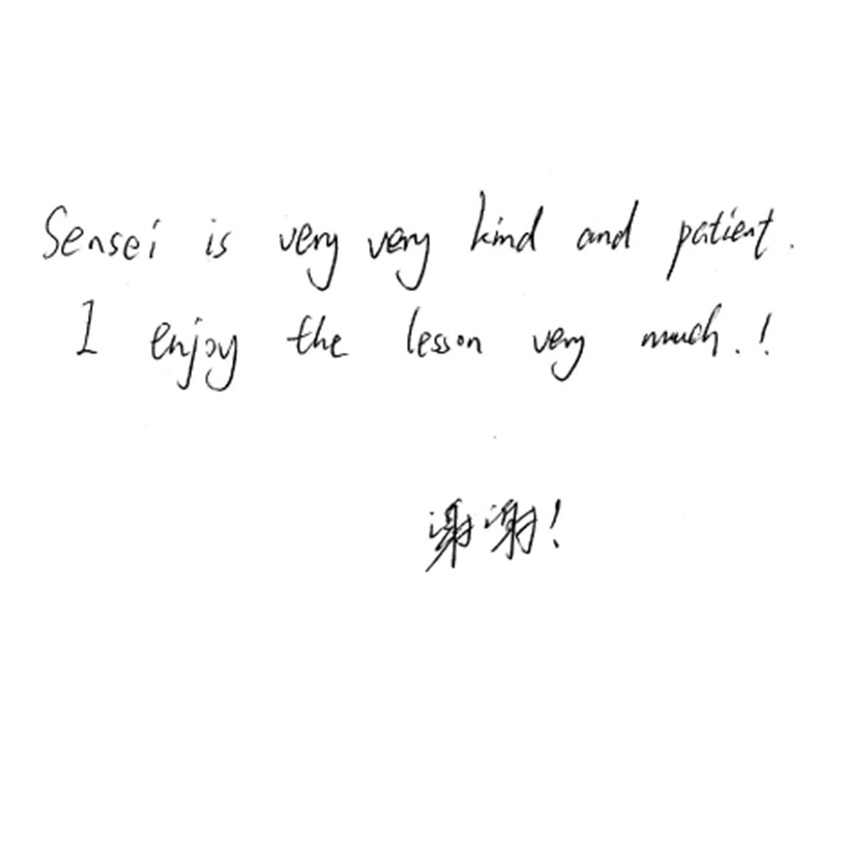 Sensei is very very kind and patient.
I enjoy the lesson very much.!
谢谢!